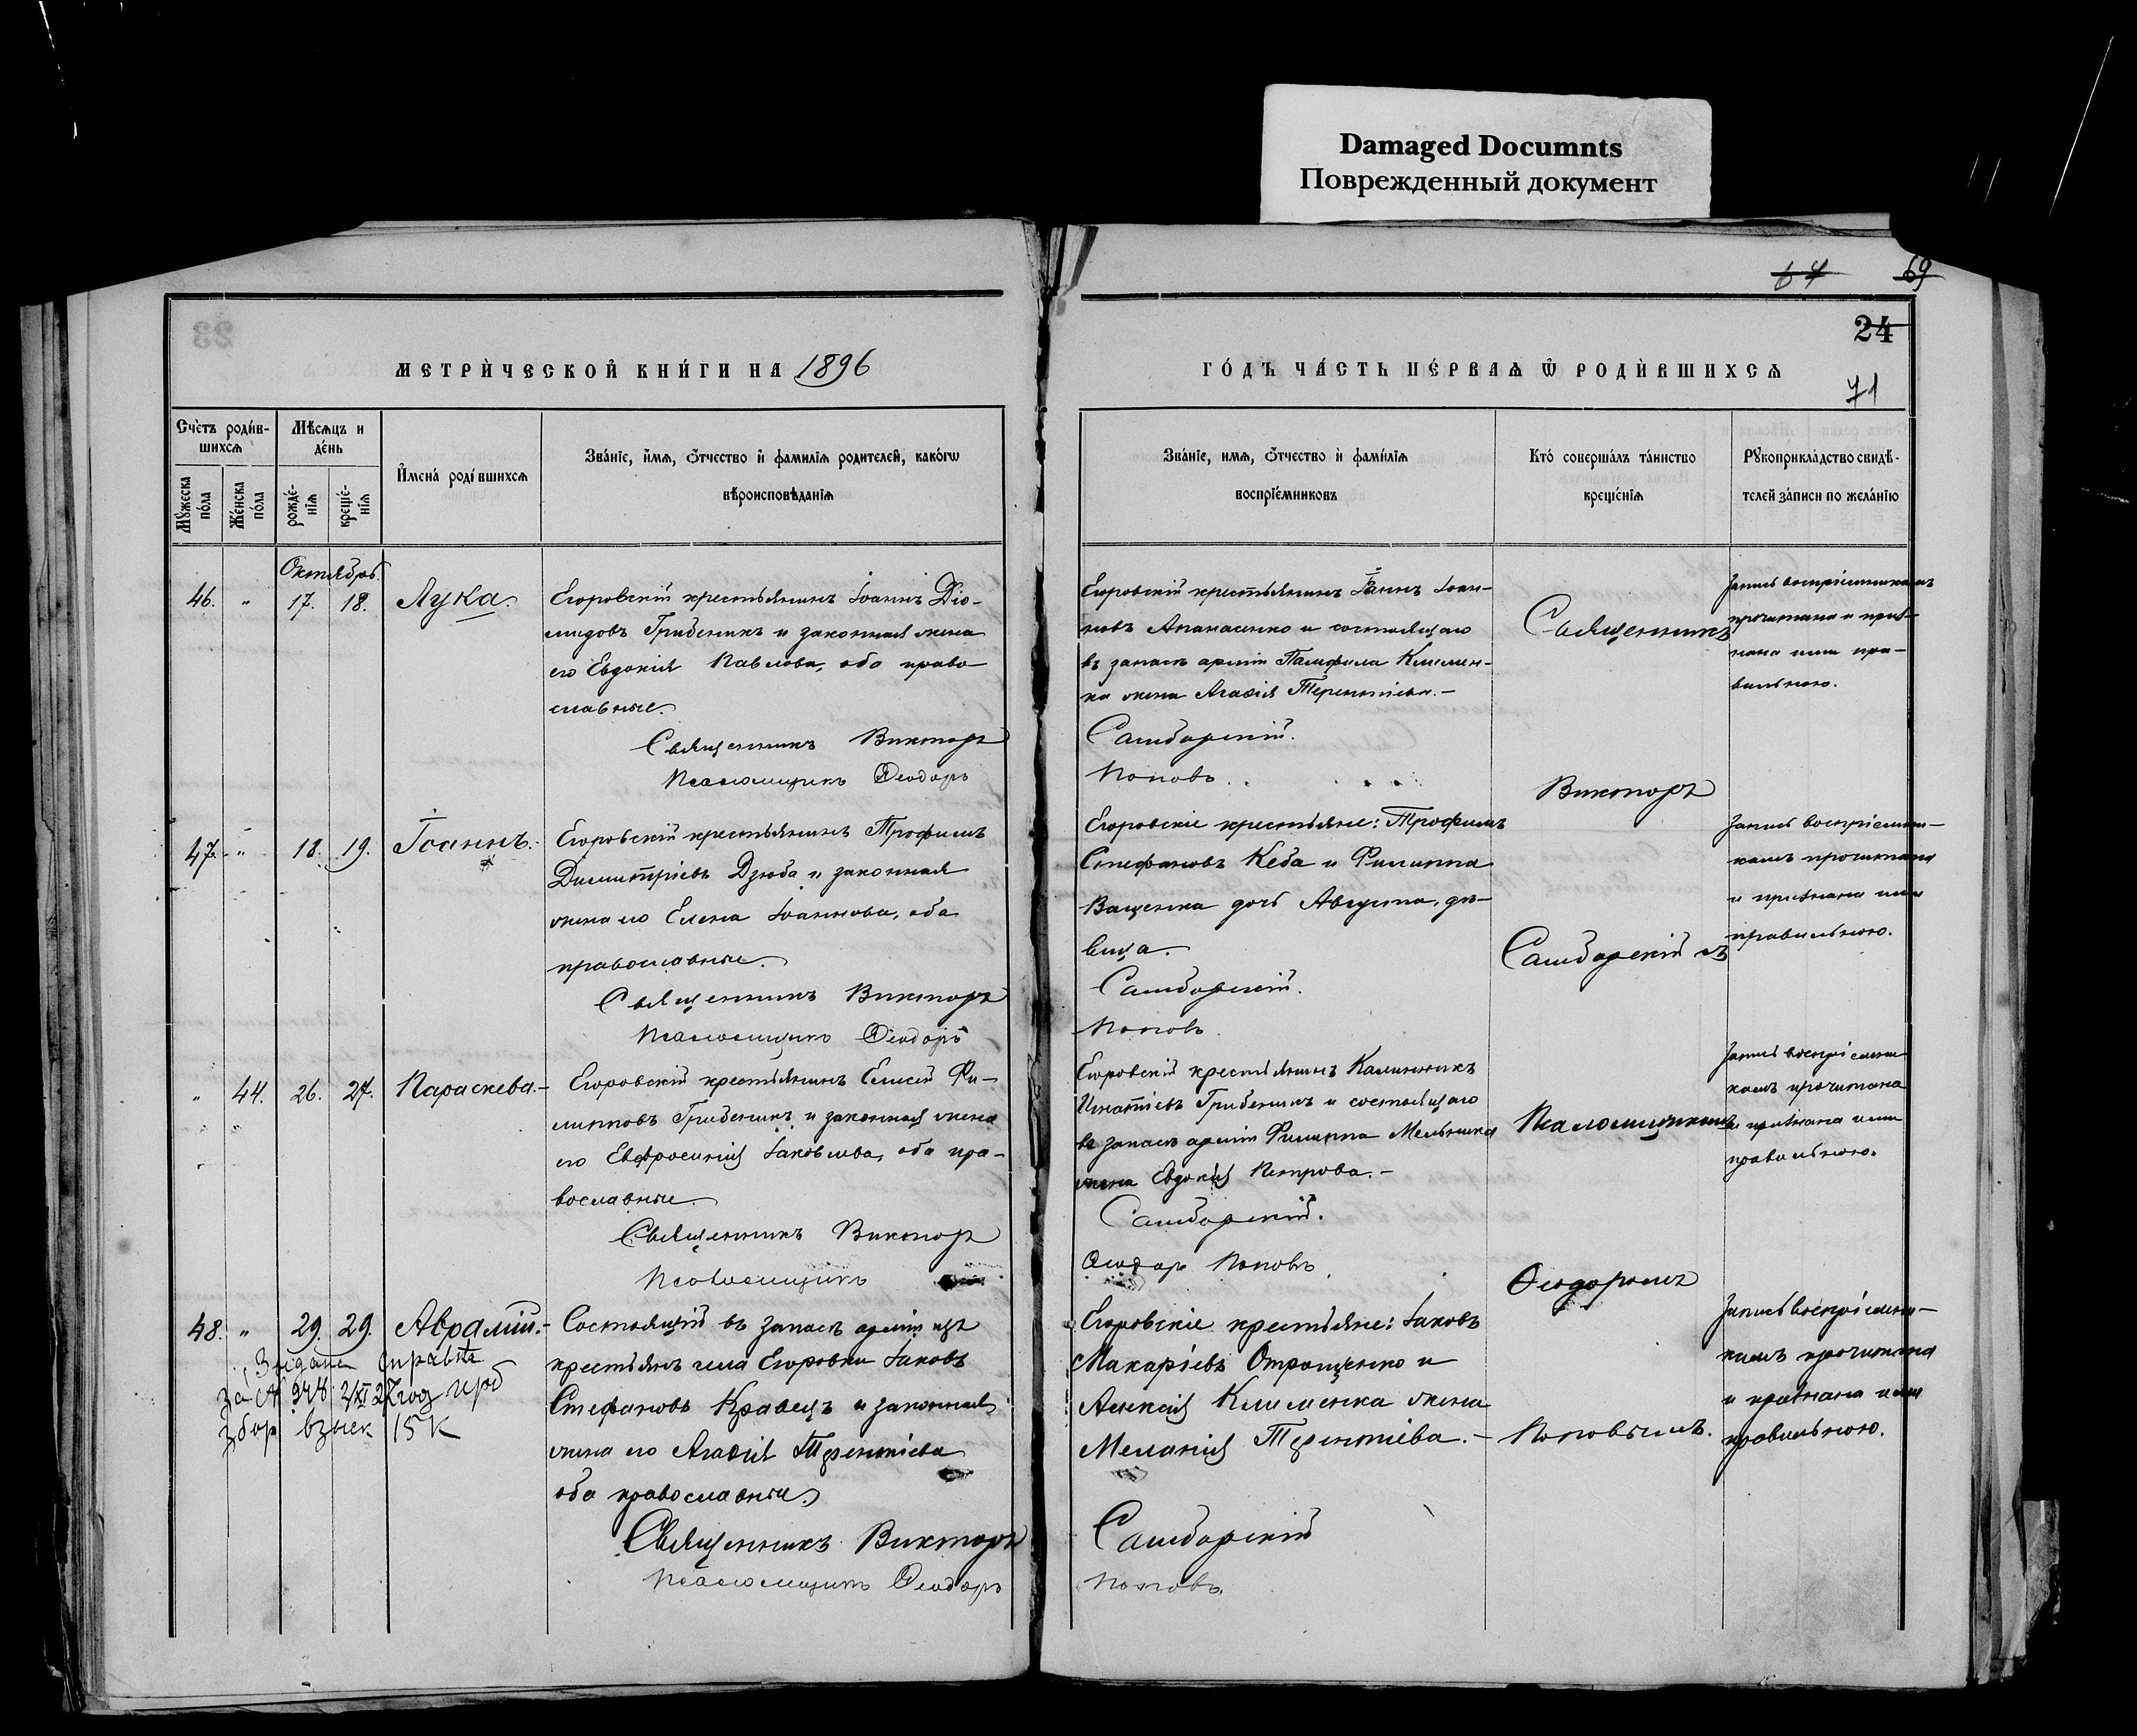 Damaged Documnts
Поврежденный документ
67
69
24
71
МЕТРИ́ЧЕСКОЙ КНИ́ГИ НА 1896
ГО́ДЪ ЧА́СТЬ ПЕ́РВАѦ Ѽ РОДИ́ВШИХСѦ
Сче́тъ роди́в-
шихсѧ
Мѣ́сѧцъ и
де́нь
Мꙋ́жеска
по́ла
Же́нска
по́ла
рожде́-
нїѧ
креще́-
нїѧ
И҆мена́ роди́вшихсѧ
Зва́нїе, и҆́мѧ, ѻ҆́тчество и҆ фамилїѧ родителей, како́гѡ
вѣроисповѣ́данїѧ
Зва́нїе, имѧ, ѻ҆́тчество и҆ фами́лїѧ
воспрїе́мниковъ
Кто́ соверша́лъ та́инство
креще́нїѧ
Рꙋкоприкла́дство свидѣ́-
телей за́писи по жела́нїю
Октябрь.
46. " 17. 18. Лука.
Егоровскій крестьянинъ Іоаннъ Діо-
мидовъ Грибеникъ и законная жена
его Евдокія Павлова, оба право-
славные.
Священникъ Викторъ
Псаломщикъ Ѳеодоръ
Егоровскій крестьянинъ Іоаннъ Іоан-
новъ Апанасенко и состоящаго
въ запасѣ арміи Памфила Климен-
ка жена Агаѳія Терентіева.-
Самборскій.
Поповъ.
Священникъ
Викторъ
Запись воспріемникамъ
прочитана и приз-
нана ими пра-
вильною.
47. " 18. 19. Іоаннъ.
Егоровскій крестьянинъ Трофимъ
Димитріевъ Дзюба и законная
жена его Елена Іоаннова, оба
православные.
Священникъ Викторъ
Псаломщикъ Ѳеодоръ
Егоровскіе крестьяне: Трофимъ
Стефановъ Кеба и Филиппа
Ващенка дочь Августа, дѣ-
вица.
Самборскій.
Поповъ
Самборскій съ
Запись воспріемни-
камъ прочитана
и признана ими
правильною.
" 44. 26. 27. Параскева.-
Егоровскій крестьянинъ Елисей Фи-
липповъ Грибеникъ и законная жена
его Евфросинія Іаковлева, оба пра-
вославные.
Священникъ Викторъ
Псаломщикъ
Егоровскій крестьянинъ Каллинникъ
Игнатіевъ Грибеникъ и состоящаго
въ запасѣ арміи Филиппа Мельника
жена Евдокія Петрова.-
Самборскій.
Ѳеодоръ Поповъ
Псаломщикомъ
Ѳеодоромъ
Запись воспріемни-
камъ прочитана
и признана ими
правильною.
48. " 29. 29. Аврамій.-
за № 948 2/XI 27 год
збор 15 к
Состоящій въ запасѣ арміи изъ
крестьянъ села Егоровки Іаковъ
Стефановъ Кравецъ и законная
жена его Агаѳія Терентіева
оба православные.
Священникъ Викторъ
Псаломщикъ Ѳеодоръ
Егоровскіе крестьяне: Іаковъ
Макаріевъ Отрощенко и
Алексія Клименка жена
Меланія Терентіева.-
Самборскій
Поповъ.
Поповымъ.
Запись воспріемни-
камъ прочитана
и признана ими
правильною.